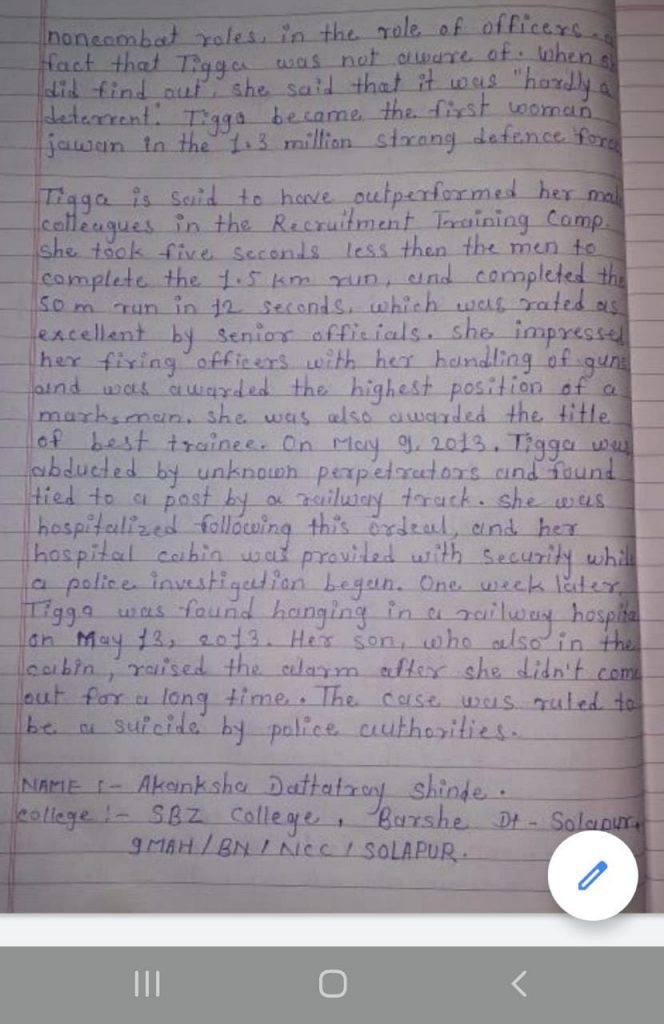 noncombat roles, in the role of officers. a
fact that Tigga was not aware of. when s
did find out, she said that it was "hardly a
deterrent." Tigga became the first woman
jawan in the 1.3 million strong defence force
Tigga is said to have outperformed her mal
colleagues in the Recruitment Training Camp.
she took five seconds less then the men to
complete the 1.5 km run, and completed the
50 m run in 12 seconds, which was rated as
excellent by senior officials. she impressed
her firing officers with her handling of guns
and was awarded the highest position of a
marksman. she was also awarded the title
of best trainee. On May 9, 2013, Tigga was
abducted by unknown perpetrators and found
tied to a post by a railway track. she was
hospitalized following this ordeal, and her
hospital cabin was provided with security while
a police investigation began. One week later,
Tigga was found hanging in a railway hospita
on May 13, 2013. Her son, who also in the
cabin, raised the alarm after she didn't come
out for a long time. The case was ruled to
be a suicide by police authorities.
NAME :- Akanksha Dattatray Shinde.
college :- SBZ College, Barshe Dt - Solapur,
9 MAH / BN / NCC / SOLAPUR.